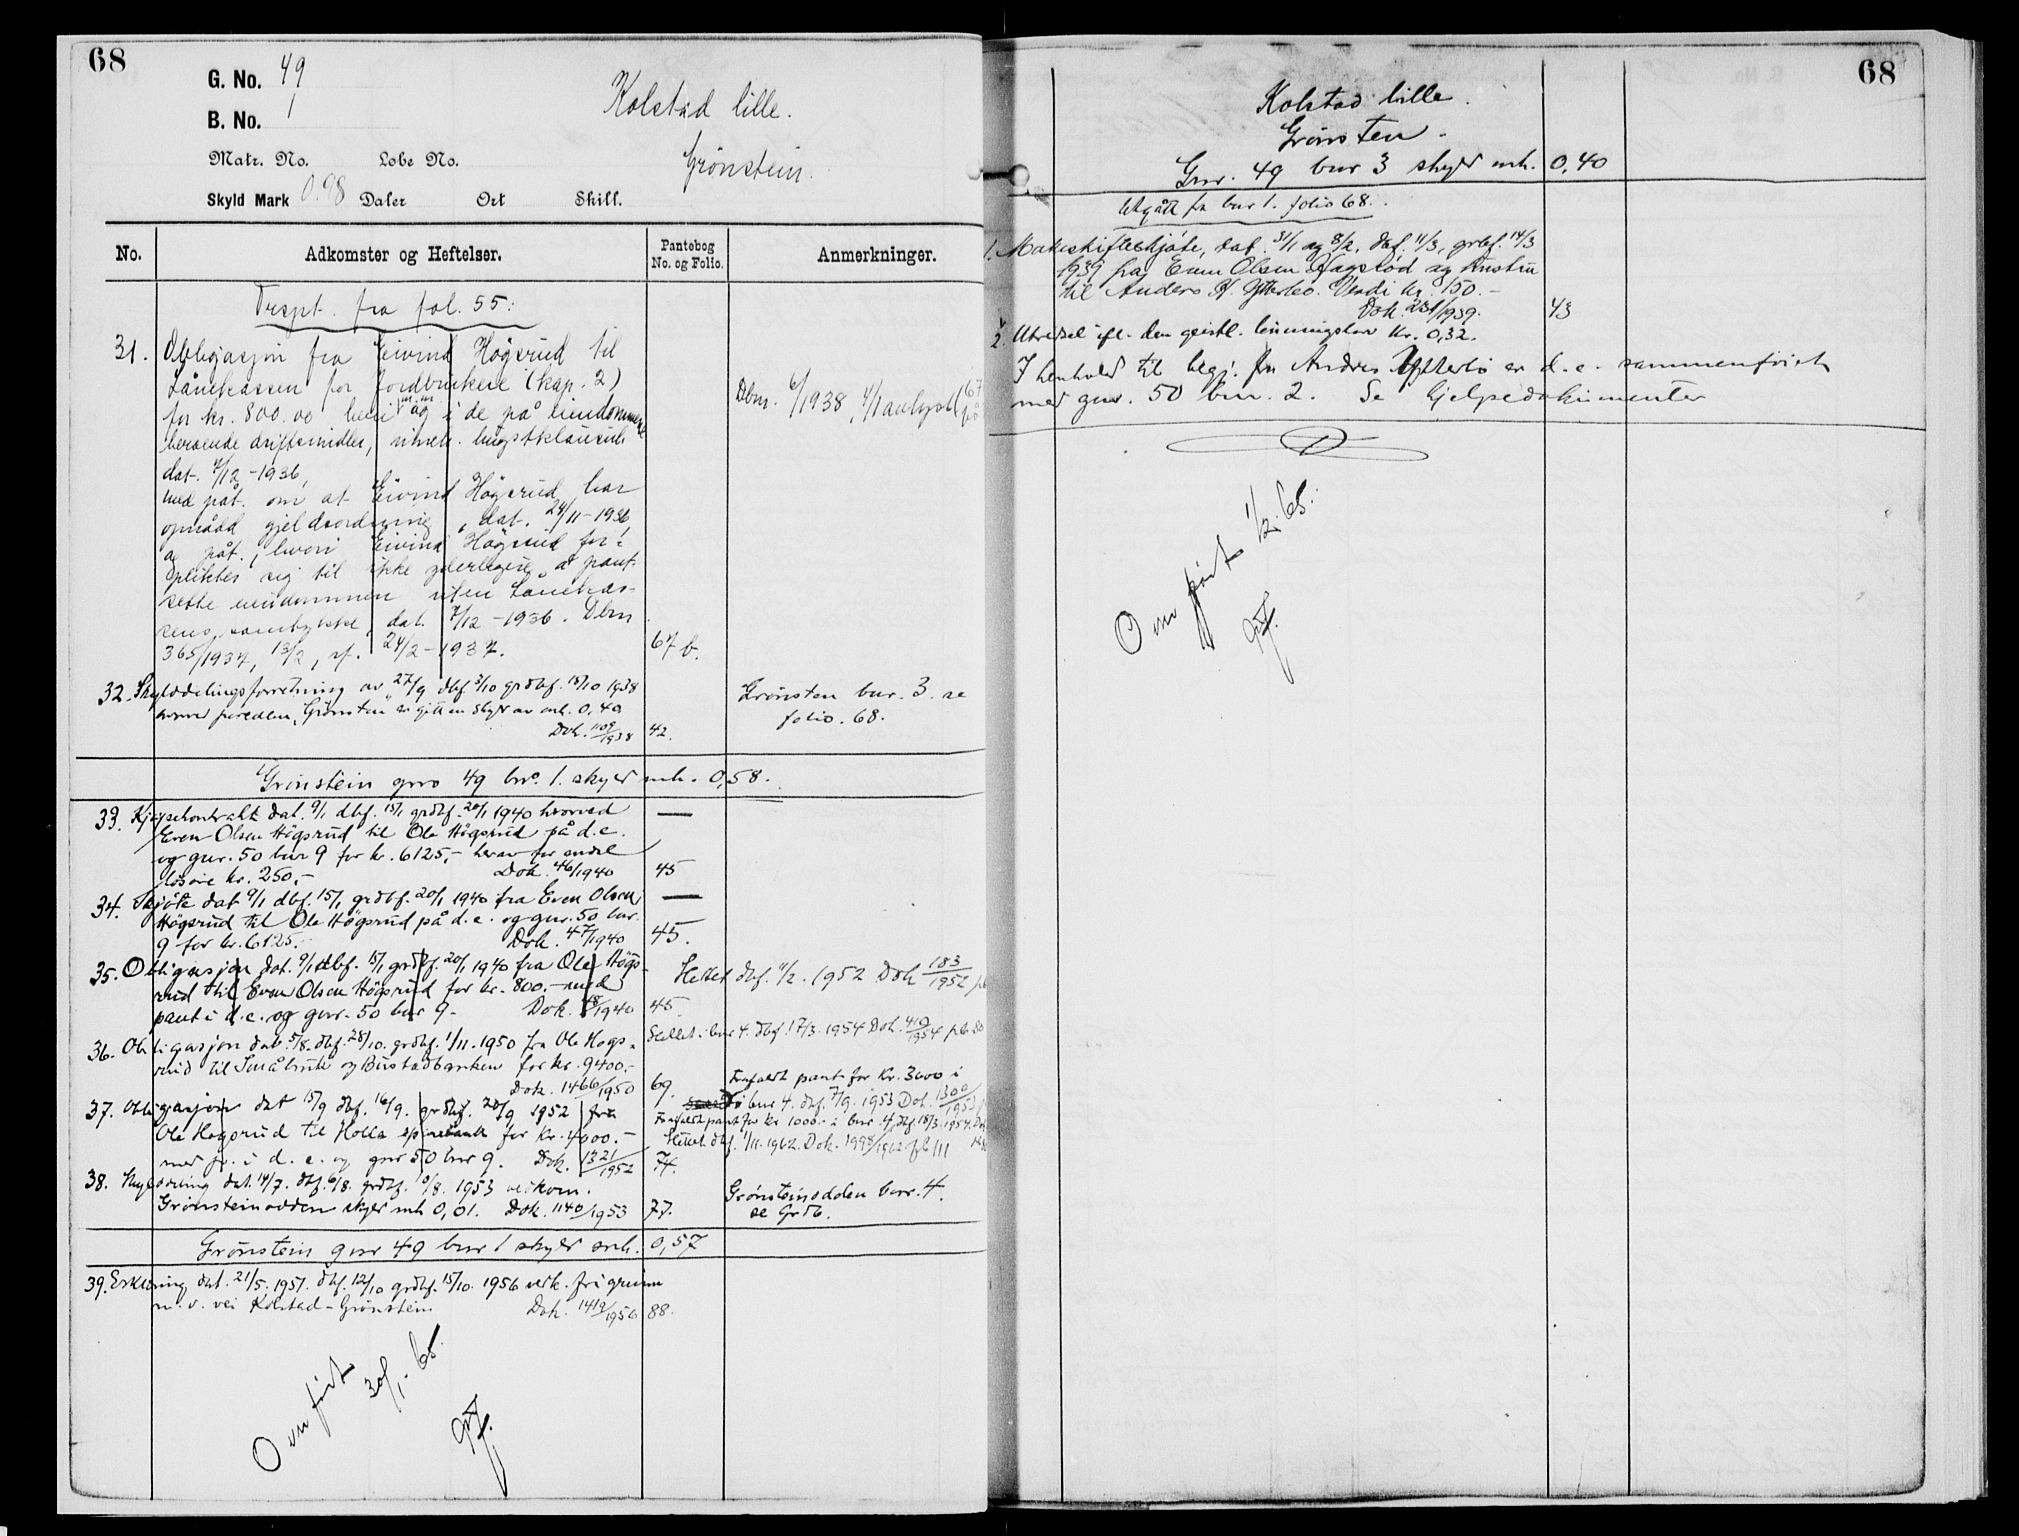 68
G. No. 49
B. No. 1
Kolstad lille.
Grønstein.
Matr. No. Løbe No.
Skyld Mark 0.98 Daler Ort Skill.
No. Adkomster og Heftelser. Pantebog No. og Folio. Anmerkninger.
Trspt. fra fol. 55:
31. Obligasjon fra Eivind Högsrud til
Lånekassen for Jordbrukere (kap. 2)
for kr. 800.00 i de på eiendommene
beroende driftsmidler,
dat. 7/12-1936,
med påt. om at Eivind Högsrud har
opnådd gjeldsordning, dat. 24/11-1936
og påt., hvori Eivind Högsrud for-
plikter sig til ikke yderligere å pant-
sette eiendommen uten Lånekas-
sens samtykke, dat. 7/12-1936. Dbm
365/1937, 13/2, rf. 24/2-1937. 67 b.
Dbm. 6/1938, 4/1 avlyst
32. Skylddelingsforretning av 27/9 dbf 3/10 grdbf. 15/10 1938
hvorved parsellen "Grønsten" er gitt en skyld av mk. 0,40
Dok. 1109/1938 42.
Grønsten bnr. 3. se
folio. 68.
Grønstein gno 49 bno. 1. skyld mk. 0,58.
33. Kjøpekontrakt dat. 9/1 dbf. 15/1 grdbf. 20/1 1940 hvorved
Even Olsen Högsrud til Ole Högsrud på d.e.
og gnr. 50 bnr 9 for kr. 6125,- herav for andel
løsøre kr. 250.- Dok. 46/1940 45
34. Skjøte dat 9/1 dbf. 15/1 grdbf. 20/1 1940 fra Even Olsen
Högsrud til Ole Högsrud på d.e. og gnr. 50 bnr.
9 for kr. 6125.- Dok. 47/1940 45.
35. Obligasjon dat. 9/1 dbf. 15/1 grdbf. 20/1 1940 fra Ole Högs-
rud til Even Olsen Högsrud for kr. 800.- med
pant i d.e. og gnr. 50 bnr 9- Dok. 48/1940 45.
Slettet dbf. 11/2. 1952 Dok 183/1952
36. Obligasjon dat. 5/8. dbf. 28/10. grdbf. 1/11. 1950 fra Ole Høgs-
rud til Småbruk og Bustadbanken for kr. 9400.-
Dok. 1466/1950 69.
Slettet i bnr 4. dbf. 17/3. 1954 Dok. 410/1954
37. Obligasjon dat 15/9 dbf. 16/9. grdbf. 20/9 1952 fra
Ole Høgsrud til Holla sparebank for kr. 4000.-
med pr. i d.e. og gnr 50 bnr 9. Dok. 1321/1952 74.
Frafaldt pant for Kr. 3000 i
bnr 4. dbf. 7/9. 1953 Dok. 1300/1953
Frafaldt pant for kr 1000.- i bnr. 4, dbf. 18/3. 1954.
Slettet dbf. 1/11. 1962. Dok. 1998/1962 pb 111
38. Skylddeling dat. 14/7. dbf. 6/8. grdbf. 10/8. 1953 vedkom.
Grønsteinodden skyld mk 0,01. Dok. 1140/1953 77.
Grønsteinodden bnr. 4.
se Grdb.
Grønstein gnr 49 bnr 1 skyld mk. 0,57
39. Erklæring dat. 21/5. 1951. dbf. 12/10 grdbf. 15/10. 1956 vedk. fri grunn
m.v. vei Kolstad-Grønstein Dok. 1419/1956 88.
Omført 30/1.-65.
68
Kolstad lille.
Grønsten.
Gnr. 49 bnr 3 skyld mk. 0,40
Utgått fra bnr 1. folio 68.
1. Makeskifteskjøte, dat. 31/1 og 8/2, dbf. 11/3, grbf. 14/3
1939 fra Even Olsen og hustru
til Anders H. Ytterbø. Verdi kr. 150.-
Dok. 231/1939. 43
2. Utredsel ifl. den geistl. lønningslov kr. 0,32.
I henhold til begj. fra Anders Ytterbø er d.e. sammenføiet
med gnr. 50 bnr. 2. Se hjelpedokumenter
Omført 1/2. 65.